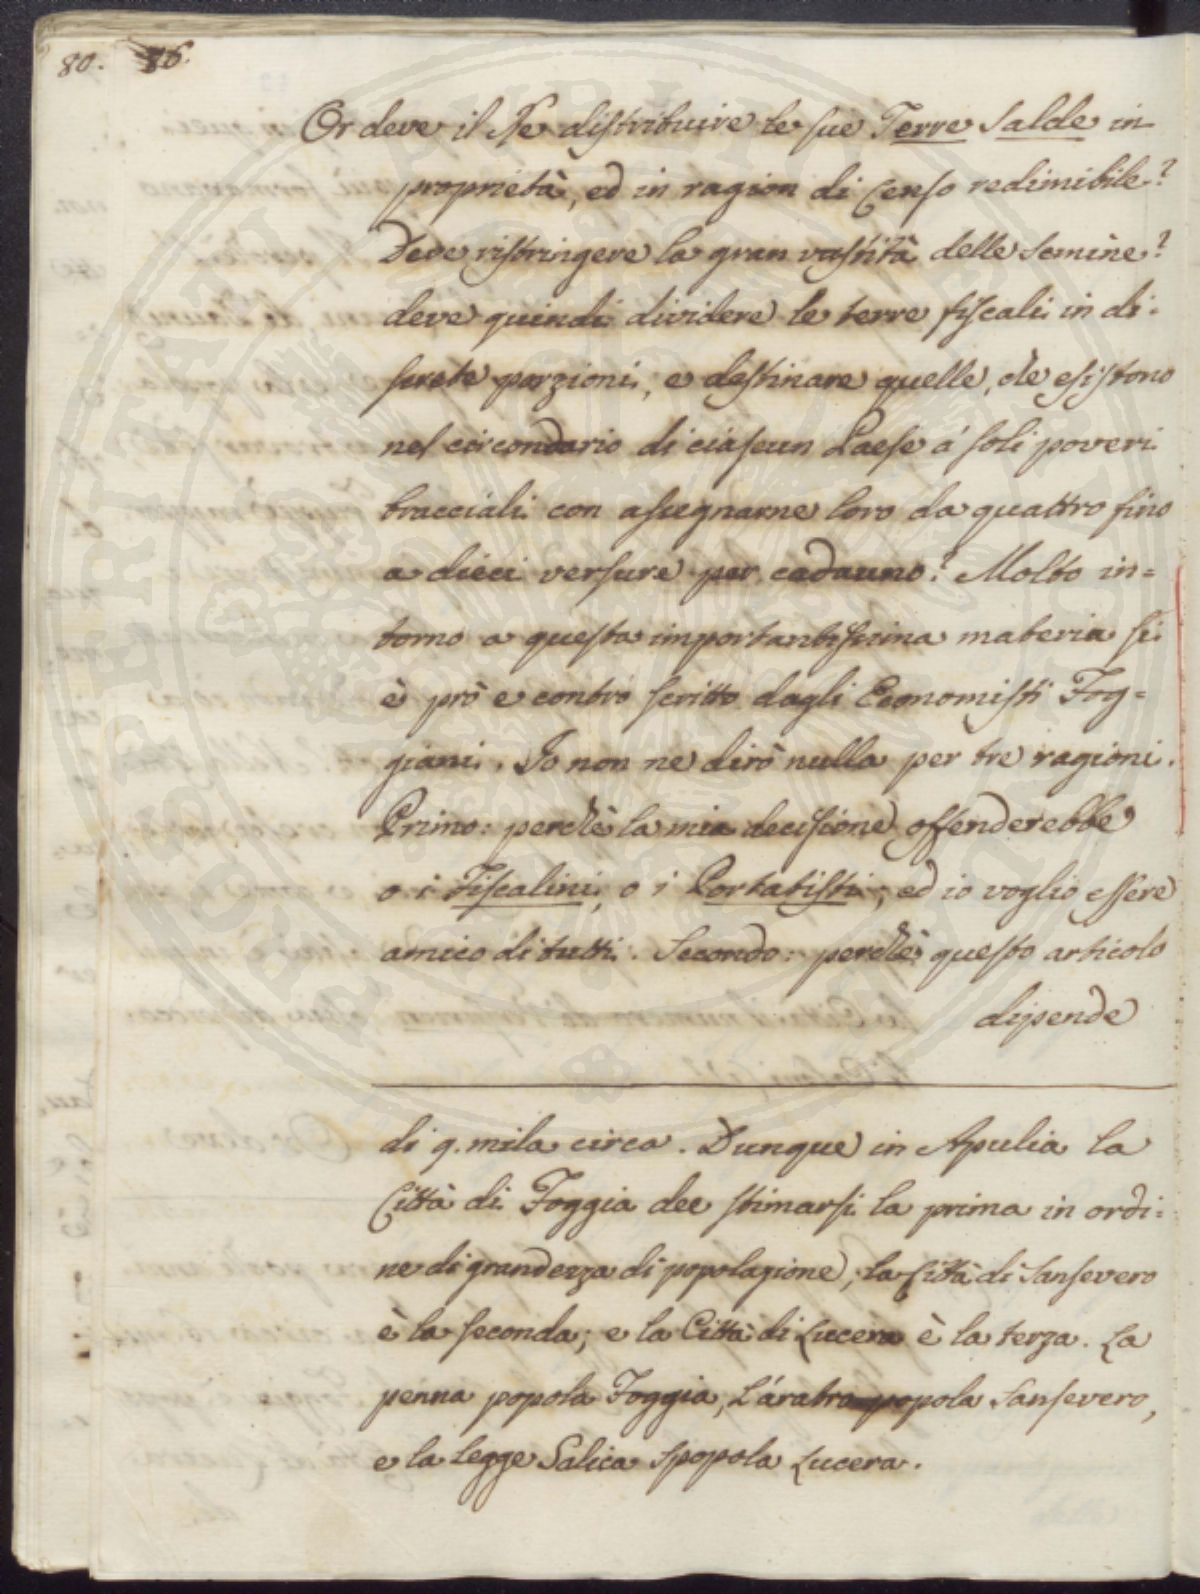 80. 86.
Or deve il Re distribuire le sue Terre salde in
proprietà, ed in ragion di Censo redimibile?
Deve ristringere la gran vastità delle semine?
deve quindi dividere le terre fiscali in di-
screte porzioni, e destinare quelle, che esistono
nel circondario di ciascun Paese á soli poveri
bracciali con assegnarne loro da quattro fino
a dieci versure per cadauno? Molto in=
torno a questa importantissima materia si
è prò e contrò scritto dagli Economisti Fog=
giani. Io non ne dirò nulla per tre ragioni.
Primo: perchè la mia decisione offenderebbe
o i Fiscalini, o i Portatisti; ed io voglio essere
amico di tutti. Secondo: perchè questo articolo
dipende
di 9. mila circa. Dunque in Apulia la
Città di Foggia dee stimarsi la prima in ordi-
ne di grandezza di popolazione; la Città di Sansevero
è la seconda; e la Città di Lucera è la terza. La
penna popola Foggia, L'áratro popola Sansevero,
e la legge Salica spopola Lucera.
PROSPERITATI PUBLICAE AUGENDAE